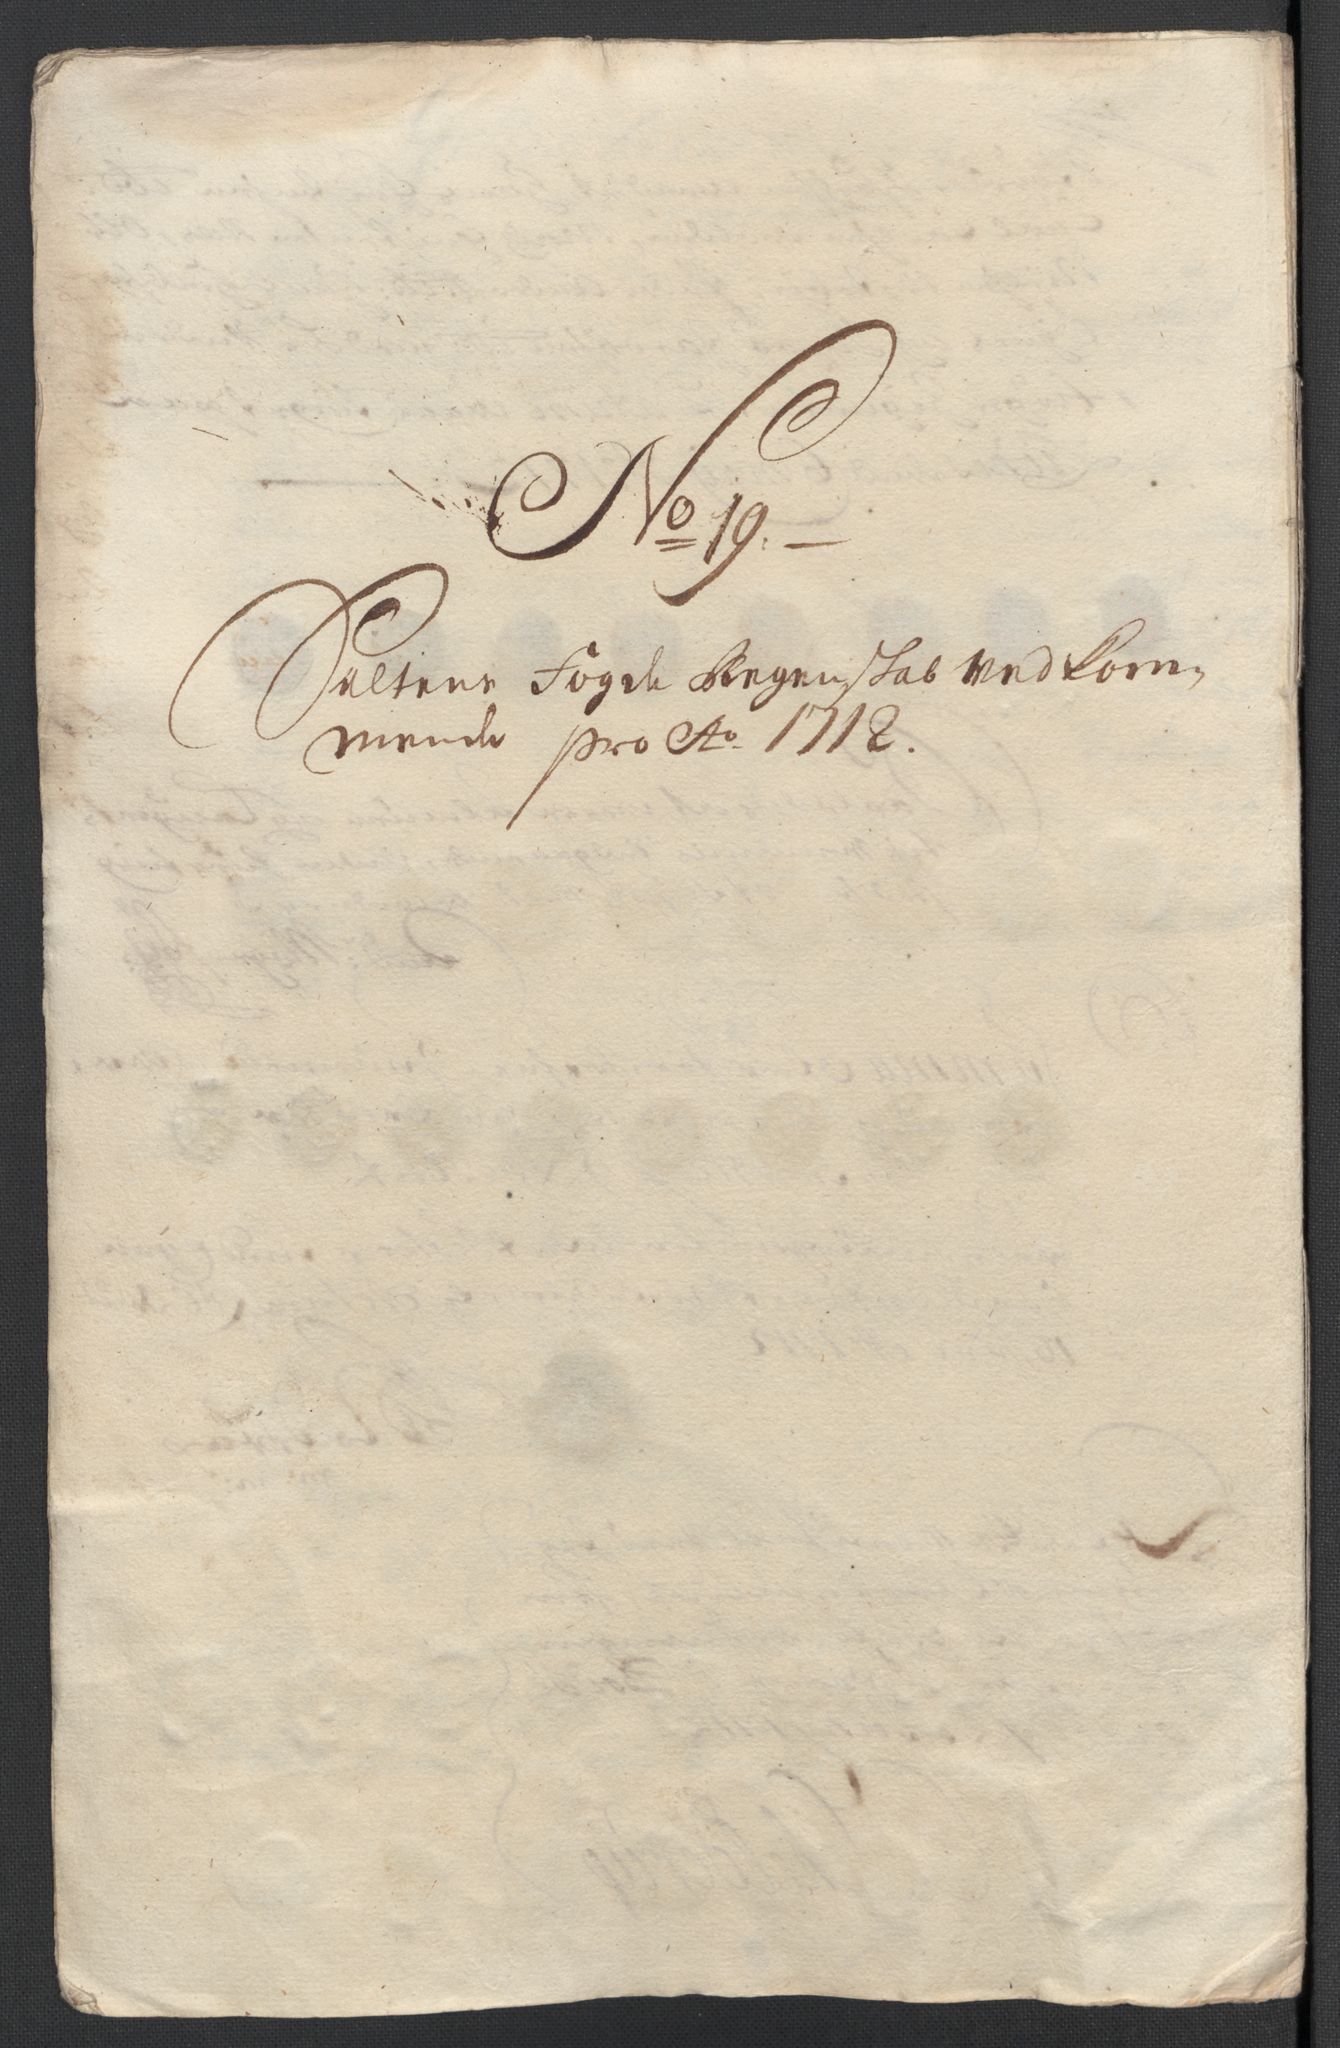 No 19.
Saltens Fogde Regenskab ved kom,,
mende pro Ao 1712.